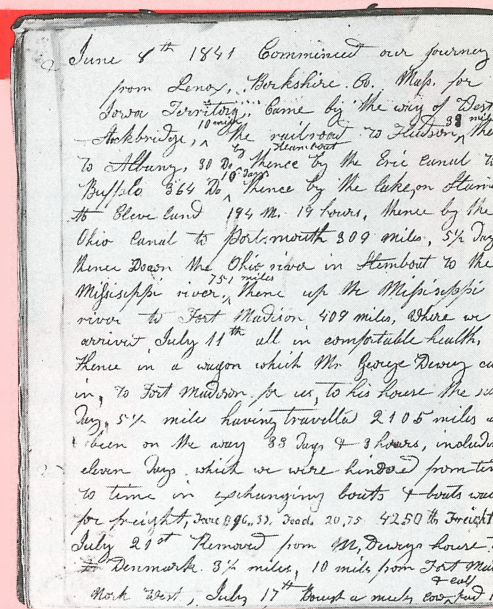 June 8th 1841 Comminced our journey
from Lenox, Berkshire Co. Mass. for
Iowa Territory, Came by the way of West
Stockbridge, 10 miles the railroad to Hudson, 33 miles the
to Albany, 30 Do, by steamboat thence by the Erie Canal to
Buffalo 364 Do 10 days thence by the lake, on Steam
to Cleveland 194 M. 19 hours, thence by the
Ohio Canal to Portsmouth 309 miles, 5½ Day
thence Down the Ohio river in Stemboat to the
Missisippi river, 751 miles thence up the Missisippi
river to Fort Madison 409 miles, Where we
arrived July 11th all in comfortable health,
thence in a wagon which Mr George Dewey ca
in, to Fort Madison for us, to his house the sa
Day, 5½ miles having travelled 2105 miles a
been on the way 33 Days & 3 hours, includi
eleven Days which we were hindred from tim
to time in exchanging boats & boats wai
for freight, Fare $96,,33. Food 20,75 4250 lb Freight
July 21st Removed from M, Deweys house
to Denmark 3½ miles, 10 miles from Fort Mad
North West, July 17th Bought a milch cow & calf paid